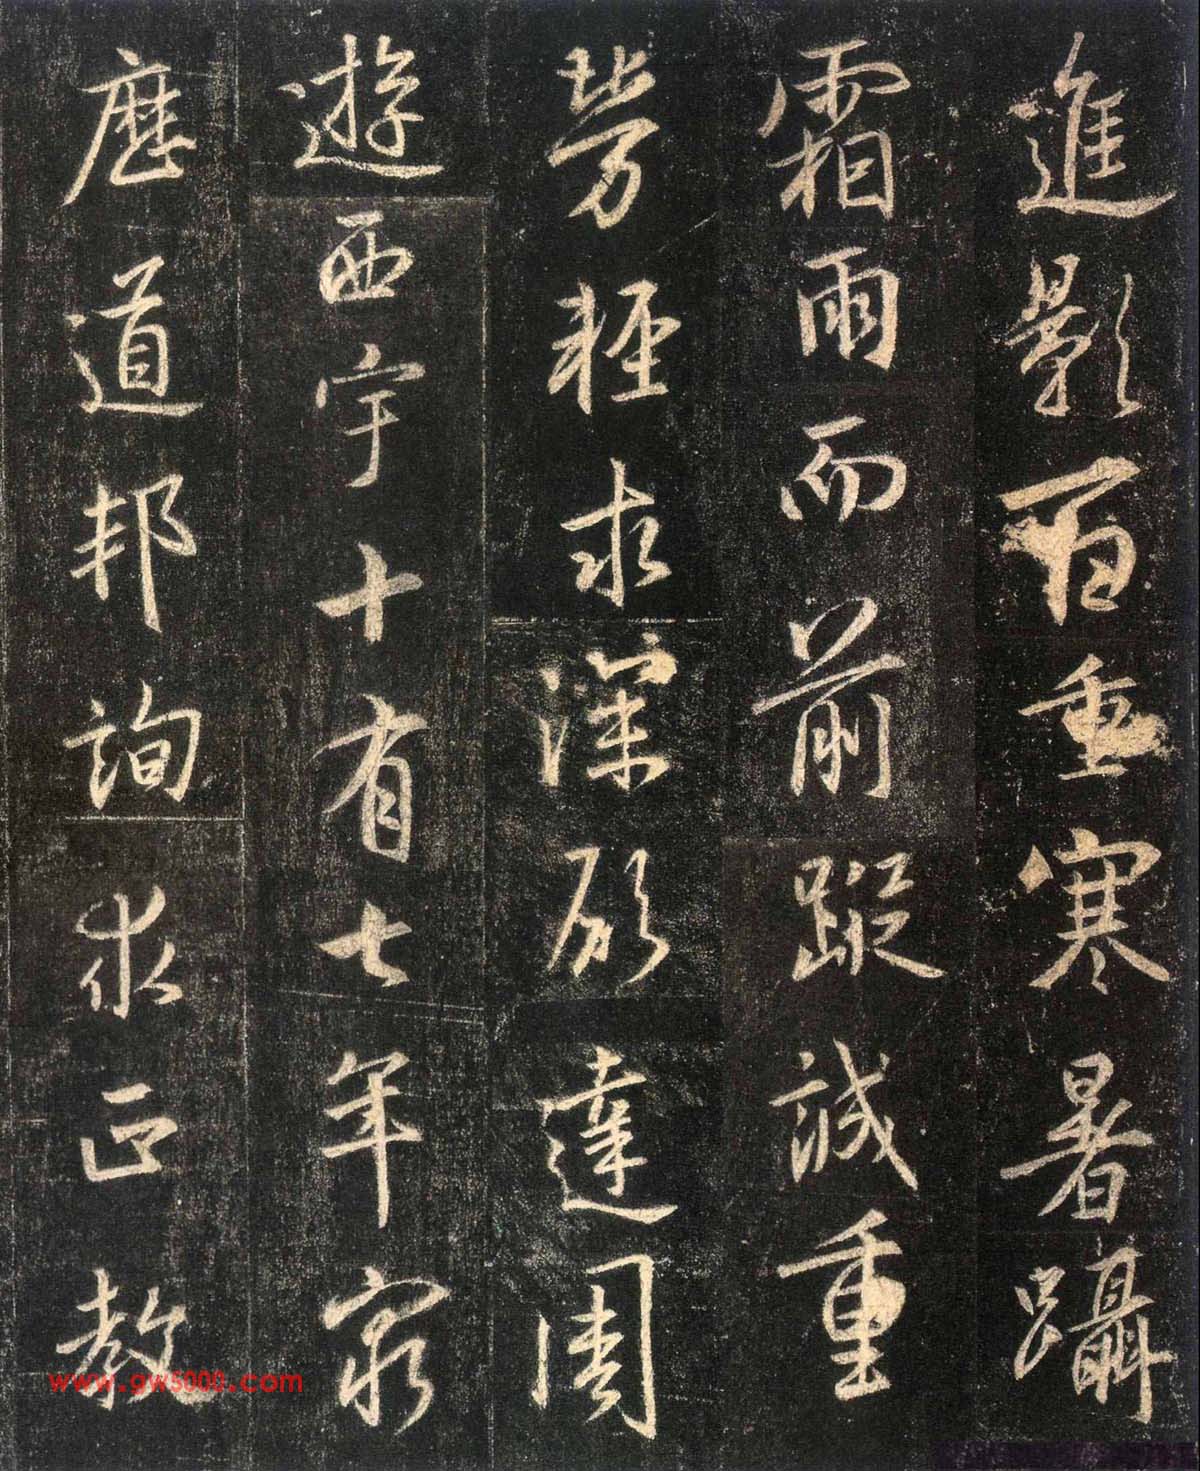 進影百重寒暑躡
霜雨而前蹤誠重
勞輕求深願達周
遊西宇十有七年窮
歷道邦詢求正教
www.gw5000.com